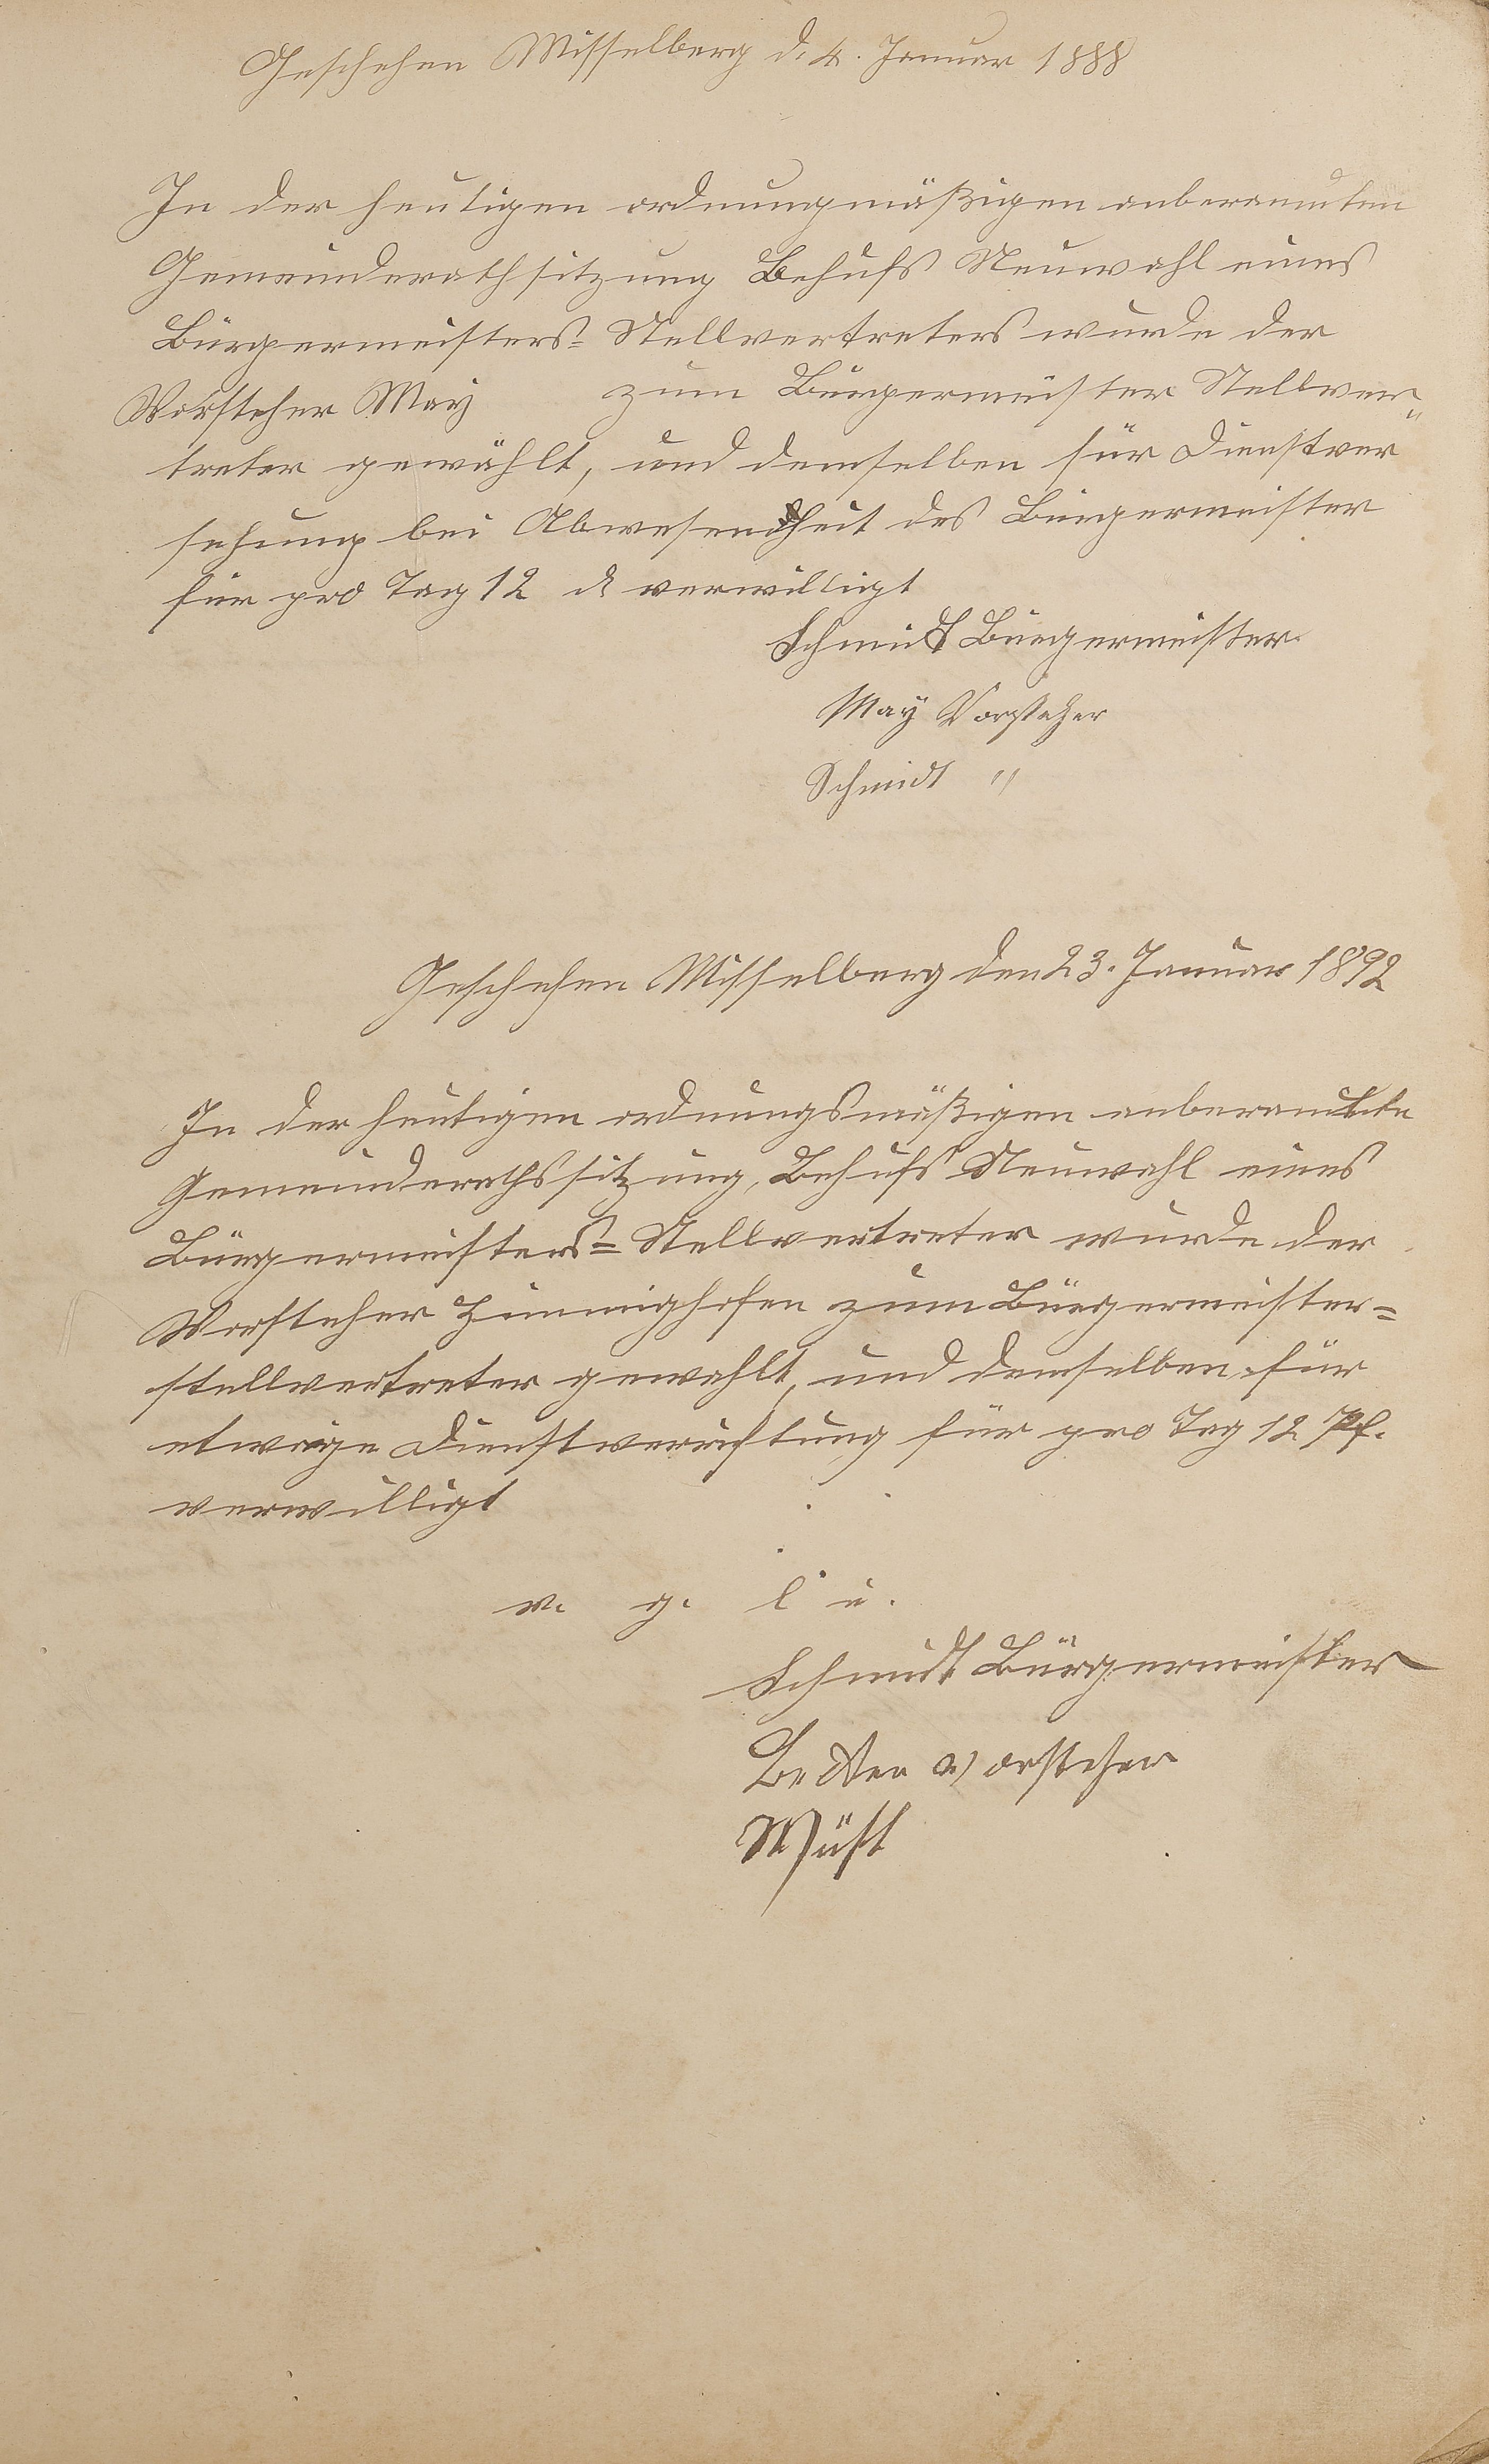 Geschehen Misselberg d. 4. Januar 1888
In der heutigen ordnungmäßigen anberaumten
Gemeinderathsitzung Behufs Neuwahl eines
Bürgermeisters- Stellvertreters wurde der
Vorsteher May zum Bürgermeister Stellver„
treter gewählt, und demselben für Dienstver
sehung bei Abwesenheit des Bürgermeister
für pro Tag 12 ₰ verwilligt
Schmidt Bürgermeister
May Vorsteher
Schmidt "
Geschehen Misselberg den 23. Januar 1892
In der heutigen ordnungsmäßigen anberaumten
Gemeinderathssitzung, Behufs Neuwahl eines
Bürgermeisters= Stellvertreter wurde der
Vorsteher Himmighofen zum Bürgermeister=
stellvertreter gewahlt, und demselben für
etwaige Dienstverrichtung für pro Tag 12 Pf.
verwilligt
v. g. u.
Schmidt Bürgermeister
Becker Vorsteher
Wüst